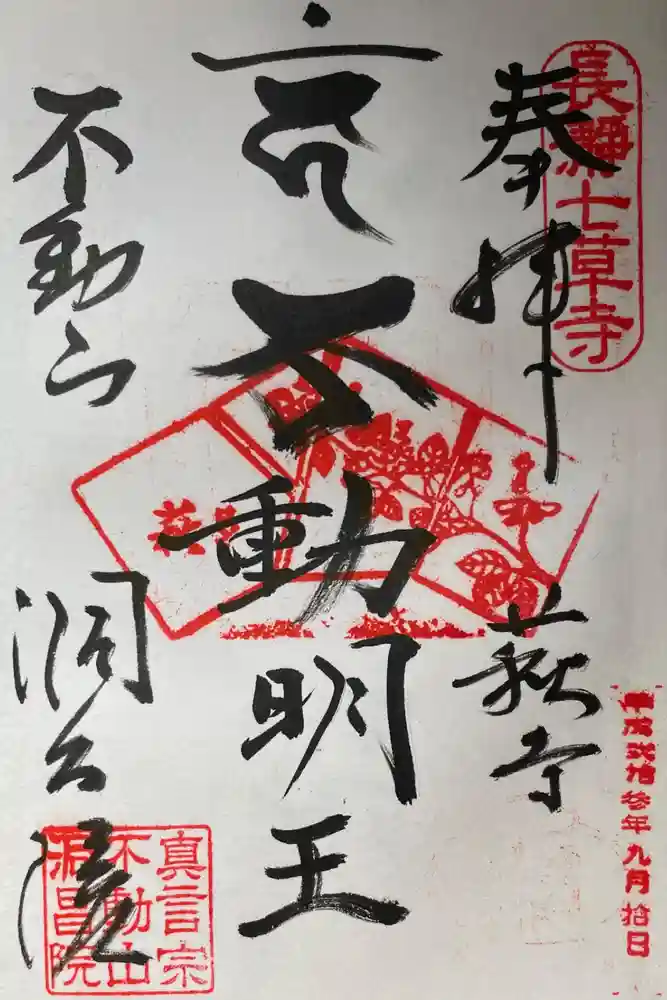 長瀞七草寺
奉拝
萩寺
平成弐拾参年九月拾日
不動明王
萩
不動山
洞昌院
真言宗
不動山
洞昌院